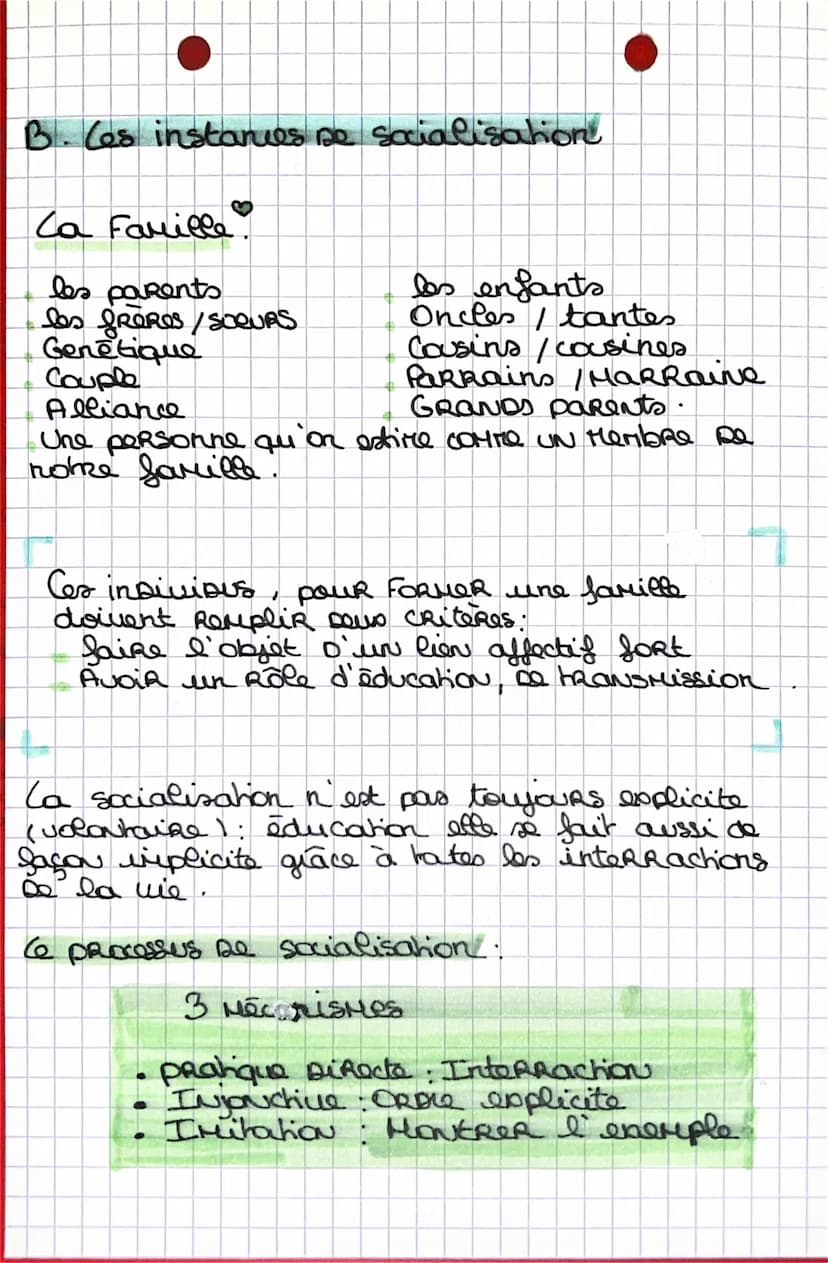 B. Les instances de socialisation
La Famille
les parents
les frères / soeurs
Genētique
Couple
Alliance
les enfants
Oncles / tantes
Cousins / cousines
Parrains / Marraine
Grands parents.
Une personne qu'on estime comme un membre de
notre famille.
Ces individus, pour former une famille
doivent remplir deux critères:
- faire l'objet d'un lien affectif fort
- Avoir un rôle d'éducation, de transmission.
La socialisation n'est pas toujours explicite
(volontaire): éducation elle se fait aussi de
façon implicite grâce à toutes les interractions
de la vie.
Le processus de socialisation:
3 mécanismes
• pratique directe : Interraction
• Injonctive : Ordre explicite
• Imitation : Montrer l'exemple